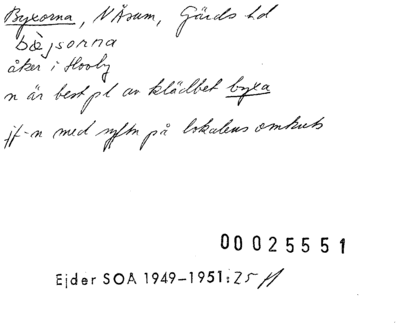 Byxorna, N Åsum, Gärds hd
bæjsorna
åker i Hovby
n är best pl av klädbet byxa
jf-n med syftn på lokalens omkrets
00025551
Ejder SOA 1949-1951: 25